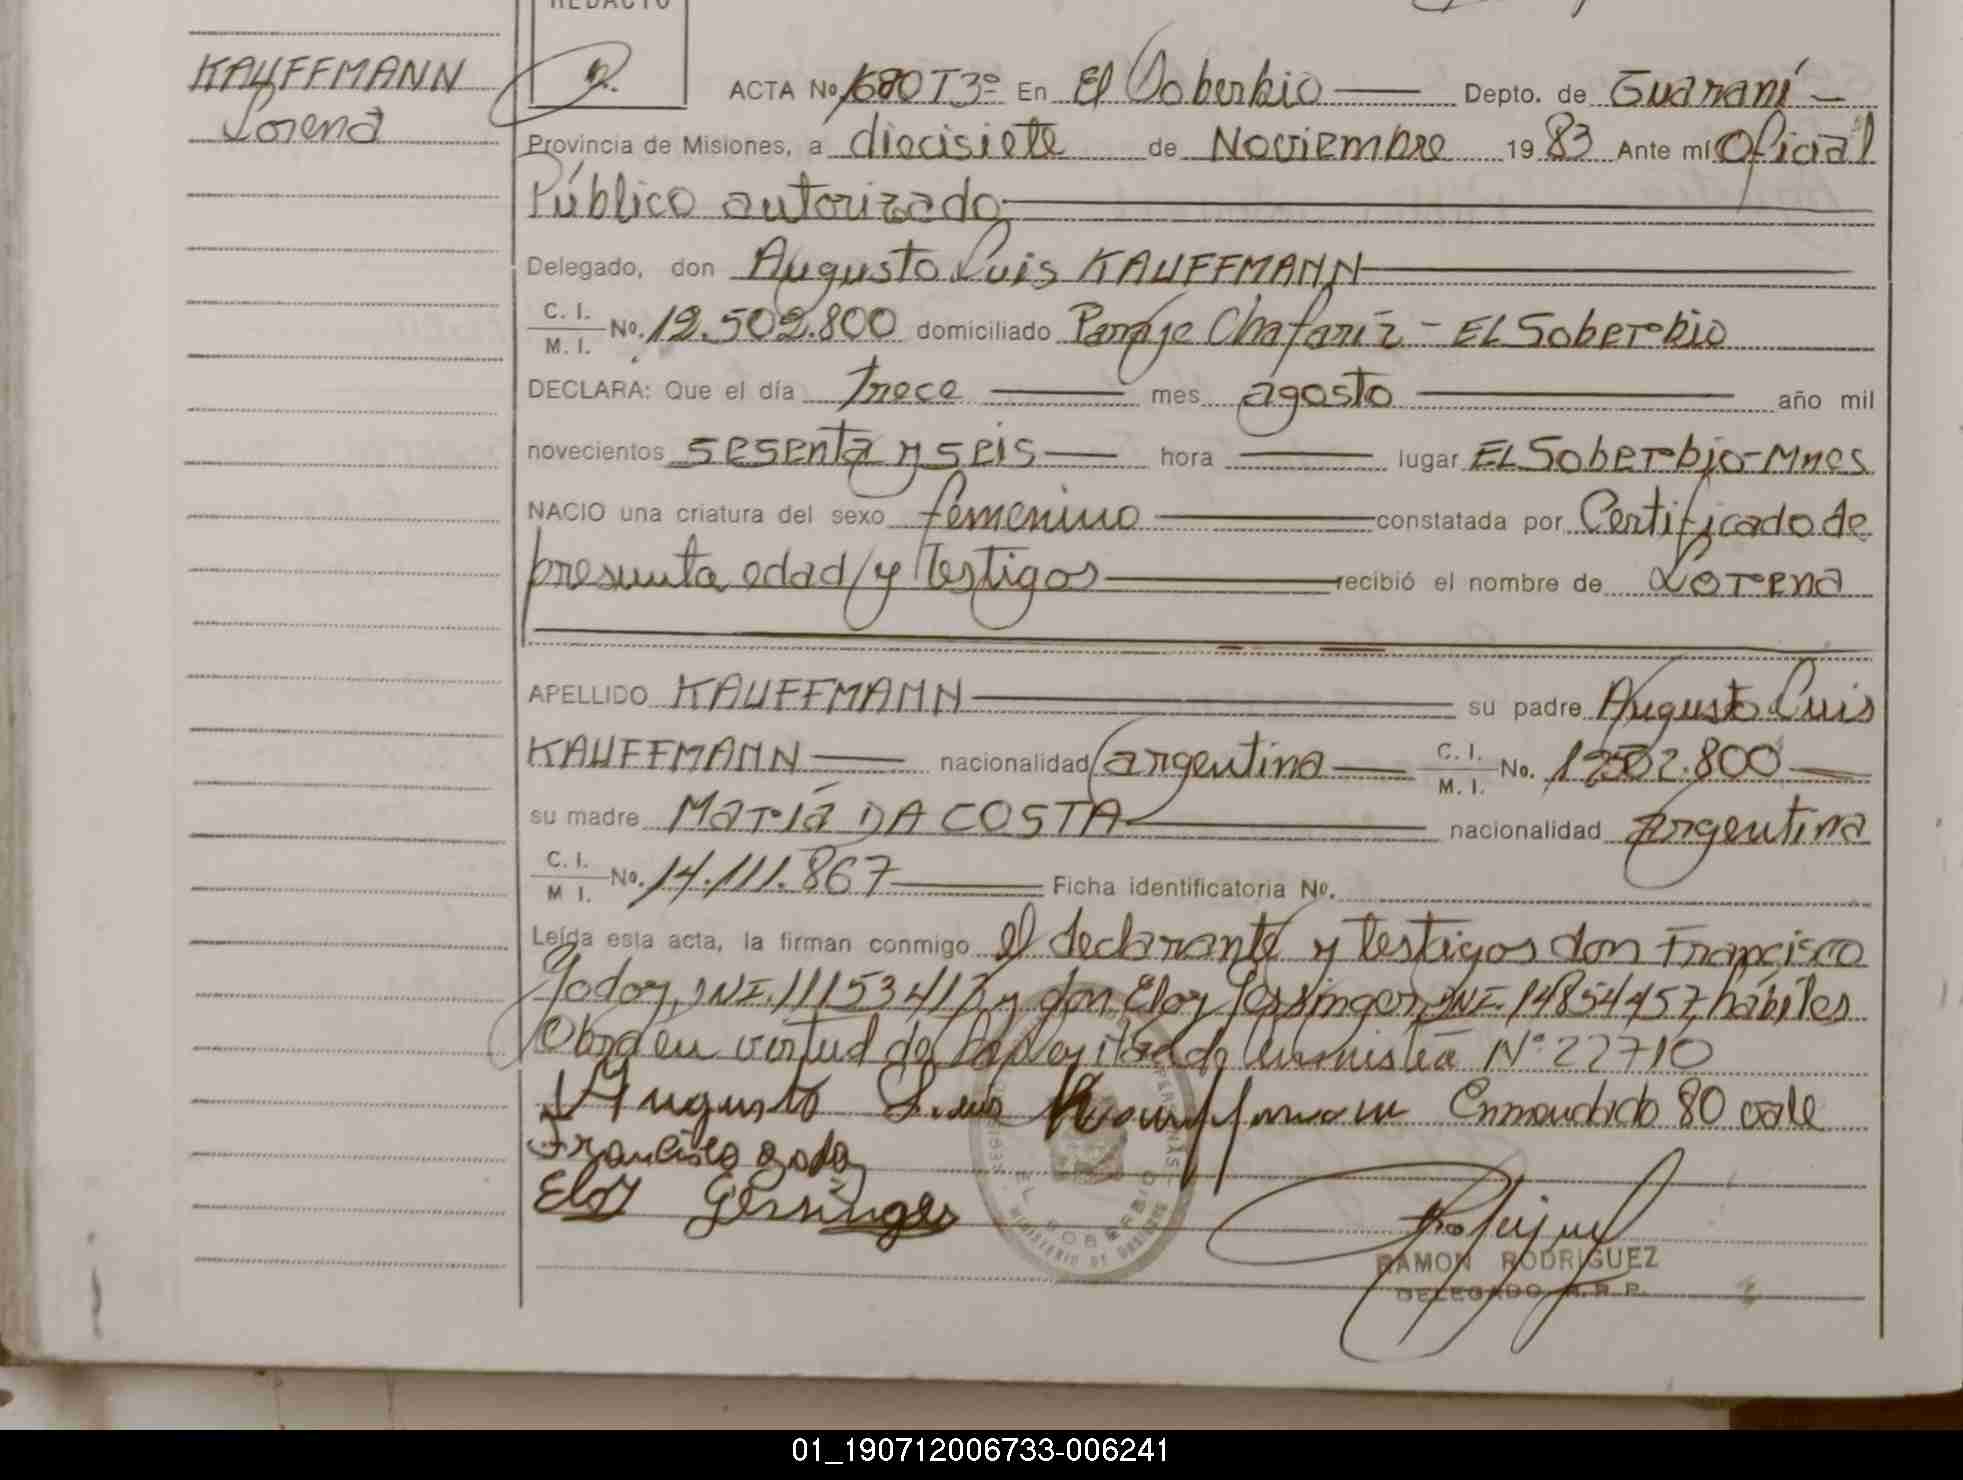 REDACTO
KAUFFMANN
Lorena
ACTA No. 1680 T3º En El Soberbio Depto. de Guaraní
Provincia de Misiones, a diecisiete de Noviembre 1983 Ante mí Oficial
Público autorizado
Delegado, don Augusto Luis KAUFFMANN
C. I.
M. I. No. 12.502.800 domiciliado Paraje Chafariz - EL Soberbio
DECLARA: Que el día trece mes agosto año mil
novecientos sesenta y seis hora lugar EL Soberbio-Mnes
NACIO una criatura del sexo femenino constatada por Certificado de
presunta edad/y Testigos recibió el nombre de Lorena
APELLIDO KAUFFMANN su padre Augusto Luis
KAUFFMANN nacionalidad argentina C. I.
M. I. No. 12502.800
su madre María DA COSTA nacionalidad argentina
C. I.
M. I. No. 14.111.867 Ficha identificatoria No.
Leída esta acta, la firman conmigo el declarante y testigos don Francisco
Godoy, DNI. 11153417 y don Eloy Gessinger, DNI. 14854457, hábiles
Obra en virtud de la Ley de amnistía Nº 22710
Augusto Luis Kauffmann Enmendado 80 vale
Francisco godoy
Eloy Gessinger
EL SOBERBIO
MINISTERIO DE GOBIERNO
RAMON RODRIGUEZ
DELEGADO R.R.P.
01_190712006733-006241